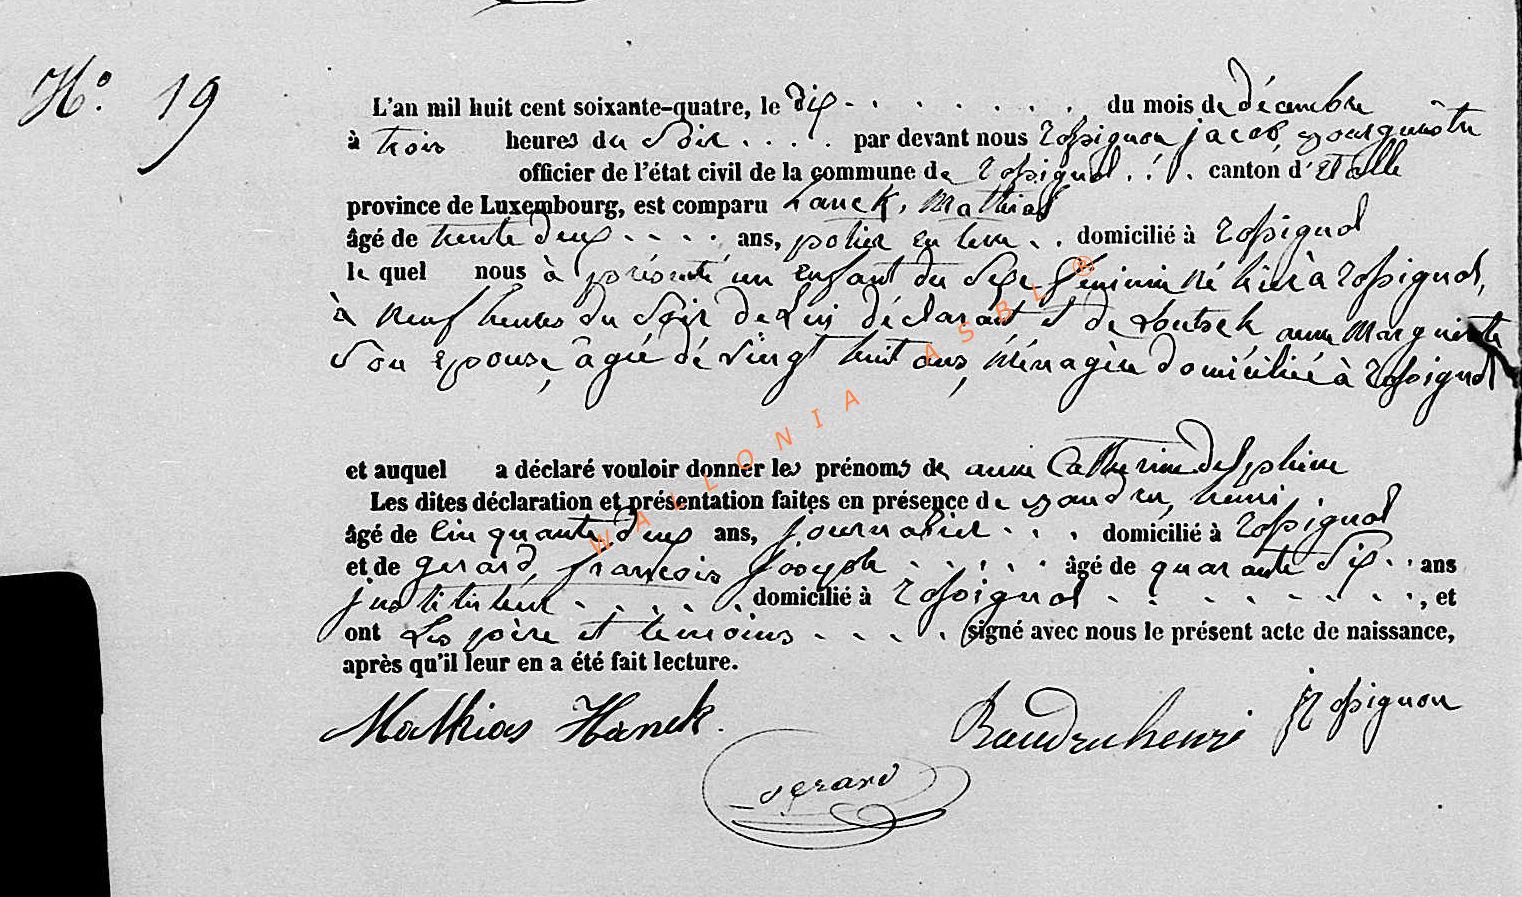 N.° 19
L'an mil huit cent soixante-quatre, le dix du mois de décembre
à trois heures du Soir par devant nous Rossignon jacob, Bourguestre
officier de l'état civil de la commune de Rossignol canton d'Etalle
province de Luxembourg, est comparu hanck, Mathias
âgé de trente deux ans, potier en terre domicilié à Rossignol
le quel nous à présenté un enfant du Sexe féminin né hier à Rossignol,
à neuf heures du Soir de Lui déclarant et de anne Marguerite
Son epouse, âgée dé vingt huit ans, Ménagère domiciliée à Rossignol
et auquel a déclaré vouloir donner les prénoms de anne Catherine delphine
Les dites déclaration et présentation faites en présence de Baudru, henri,
âgé de cinquante deux ans, journalier domicilié à Rossignol
et de gerard, françois Joseph âgé de quarante Six ans
justituteur domicilié à Rossignol, et
ont Les père et temoins signé avec nous le présent acte de naissance,
après qu'il leur en a été fait lecture.
Mathias Hanck. Baudru henri j Rossignon
Gerard
WALLONIA ASBL ®